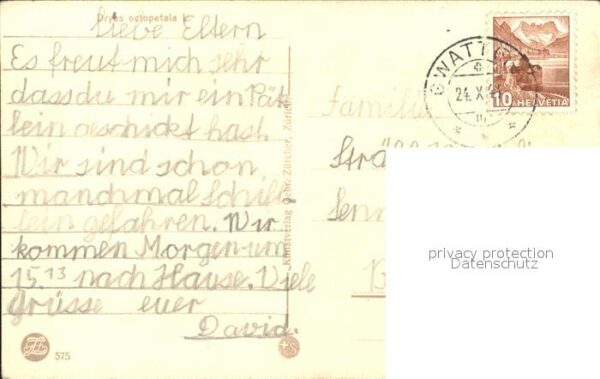 Dryas octopetala L.
liebe Eltern
Es freut mich sehr
dass du mir ein Päk
lein geschickt hast.
Wir sind schon
manchmal Schiff
lein gefahren. Wir
kommen Morgen um
15.13 nach Hause. Viele
Grüsse euer
David.
575
Kunstverlag Gebr. Zürcher, Zürich
GWATT
24. X.
10 HELVETIA
Familie
privacy protection
Datenschutz